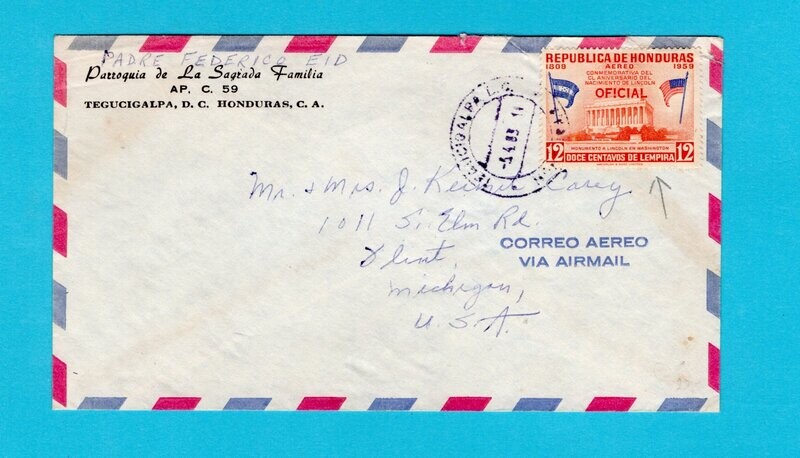 PADRE FEDERICO EID
Parroquia de La Sagrada Familia
AP. C. 59
TEGUCIGALPA, D. C. HONDURAS, C. A.
TEGUCIGALPA
REPUBLICA DE HONDURAS
1809 AEREO 1959
CONMEMORATIVA DEL
CL ANIVERSARIO DEL
NACIMIENTO DE LINCOLN
OFICIAL
MONUMENTO A LINCOLN EN WASHINGTON
12 DOCE CENTAVOS DE LEMPIRA 12
Mr. & Mrs. J. Carey
1011 S. Elm Rd.
Flint,
Michigan,
U.S.A.
CORREO AEREO
VIA AIRMAIL